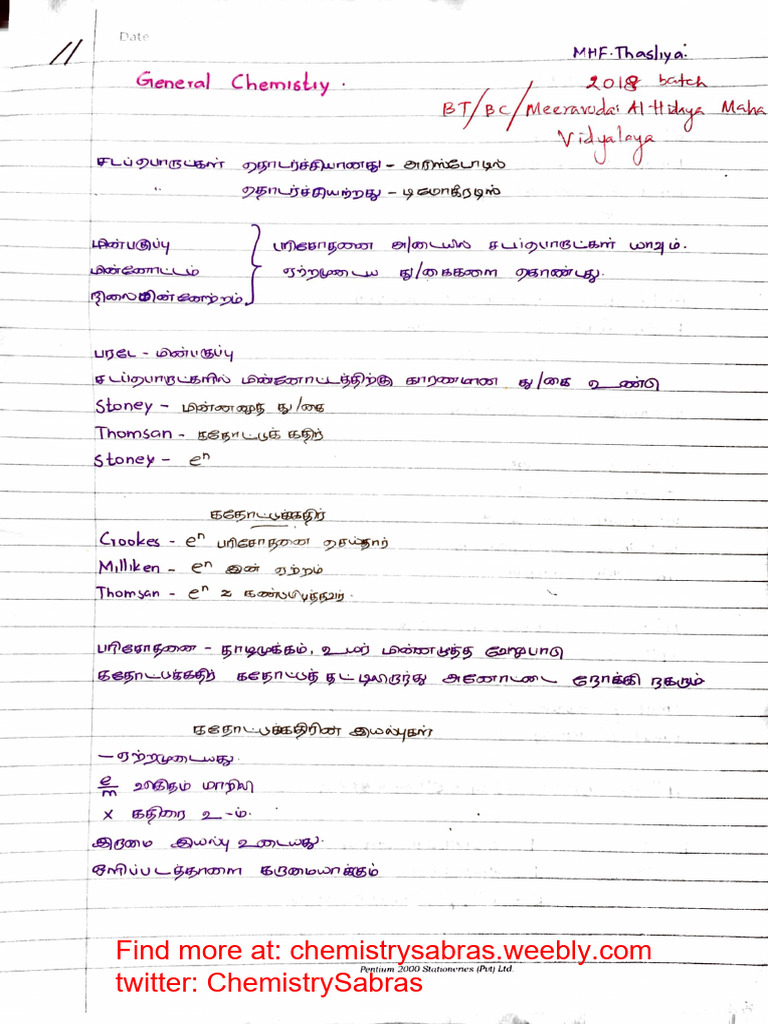 Date
11
MHF.Thasliya.
General Chemistry.
2018 batch
BT/BC/Meeravodai Al-Hidaya Maha
Vidyalaya
சடப்பொருட்கள் தொடர்ச்சியானது - அரிஸ்டோடில்
" தொடர்ச்சியற்றது - டிமோகிரடிஸ்
மின்பகுப்பு } பரிசோதனை அ/டையில் சடப்பொருட்கள் யாவும்.
மின்னோட்டம் ஏற்றமுடைய து/கைகளை கொண்டது.
நிலைமின்னேற்றம்
பரடே - மின்பகுப்பு
சடப்பொருட்களில் மின்னோட்டத்திற்கு காரணமான து/கை உண்டு
Stoney - மின்னமுத் து/கை
Thomsan - கதோட்டுக் கதிர்
Stoney - eⁿ
கதோட்டுக்கதிர்
Crookes - eⁿ பரிசோதனை செய்தார்
Milliken - eⁿ இன் ஏற்றம்
Thomsan - eⁿ ஐ கண்டுபிடித்தவர்.
பரிசோதனை - தாழமுக்கம், உயர் மின்னழுத்த வேறுபாடு
கதோட்டுக்கதிர் கதோட்டுத் தட்டிலிருந்து அனோட்டை நோக்கி நகரும்
கதோட்டுக்கதிரின் இயல்புகள்
– ஏற்றமுடையது.
e/m விகிதம் மாறிலி
x கதிரை உ-ம்.
இருமை இயல்பு உடையது.
ஒளிப்படத்தாளை கருமையாக்கும்
Find more at: chemistrysabras.weebly.com
Pentium 2000 Stationeries (Pvt) Ltd.
twitter: ChemistrySabras